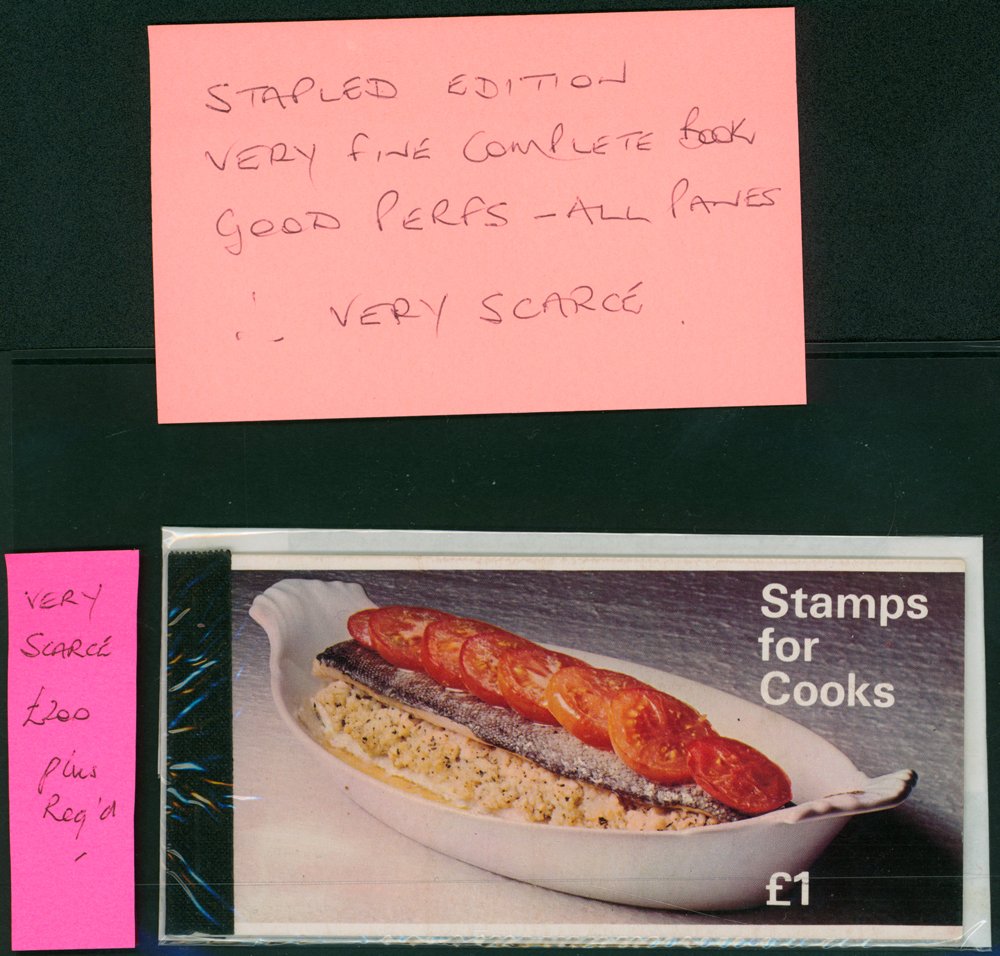 STAPLED EDITION
VERY FINE COMPLETE BOOK
GOOD PERFS - ALL PANES
∴ VERY SCARCE.
VERY
SCARCE
£200
plus
Req'd
Stamps
for
Cooks
£1